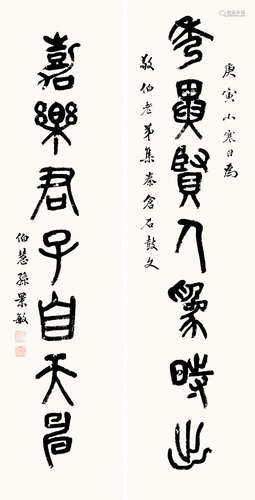 庚寅小寒日為
秀異賢人為時出
敬伯老弟集秦倉石鼓文
嘉樂君子自天申
伯慧孫景敏